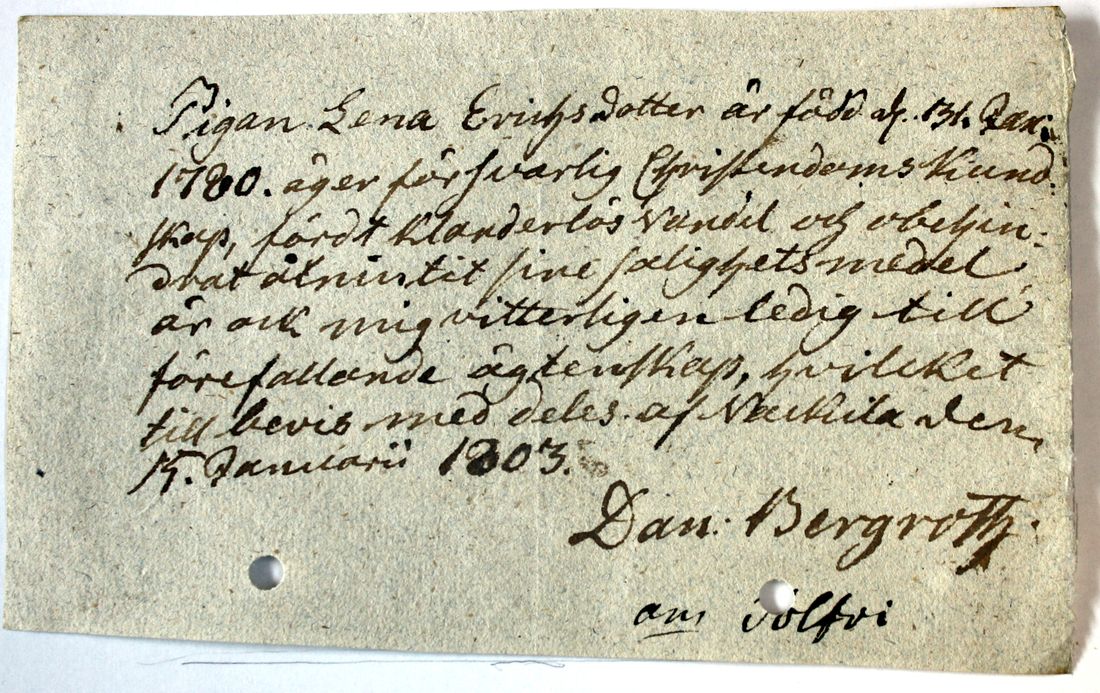 Pigan Lena Erichsdotter är född d. 31. Jan:
1780. äger försvarlig Christendoms Kund-
skap, fördt Klanderlös Vandel och obehin-
drat åtnjutit sine salighets medel
är ock mig vitterligen ledig till
förefallande ägtenskap, hvilcket
till bevis med deles. af Nerkila den
15. Januarii 1803.
Dan: Bergroth.